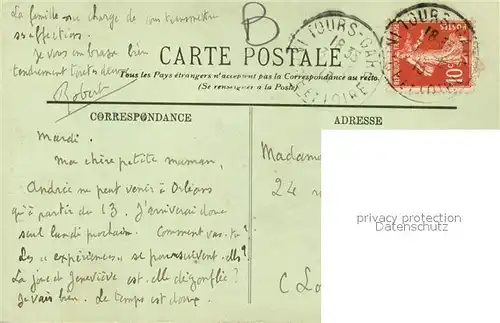 La famille me charge de vous transmettre
ses affections.
Je vous embrasse bien
tendrement toutes deux.
Robert
B
TOURS-GARE
18 35
ET-LOIRE
TOURS-GARE
18
10c
CARTE POSTALE
Tous les Pays étrangers n'acceptent pas la Correspondance au recto.
(Se renseigner à la Poste)
CORRESPONDANCE
ADRESSE
Mardi.
Ma chère petite maman,
Andrée ne peut venir à Orléans
qu'à partir du 13. J'arriverai donc
seul lundi prochain. Comment vas-tu?
Les "expériences" se poursuivent-elles?
La joue de Geneviève est-elle dégonflée?
Je vais bien. Le temps est doux.
Madame
24
privacy protection
Datensschutz